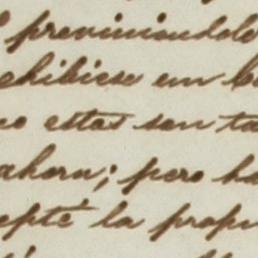 previniendole
chibiese en
estas son ta
ahora; pero ha
epté la propu